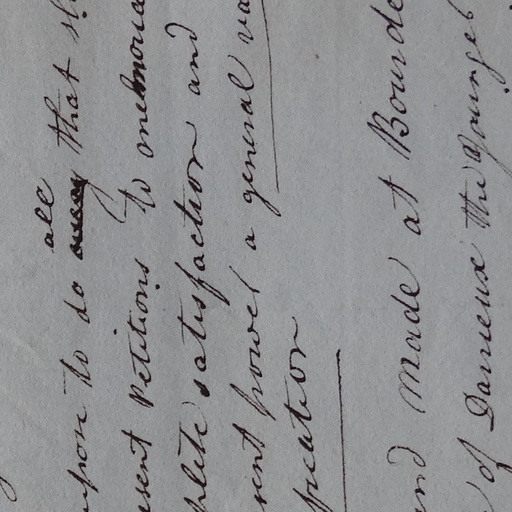 upon to do all that
esent Petitions to
plete satisfaction and
rent power a general va
fication
and made at Bourde
of Darieux the Younger